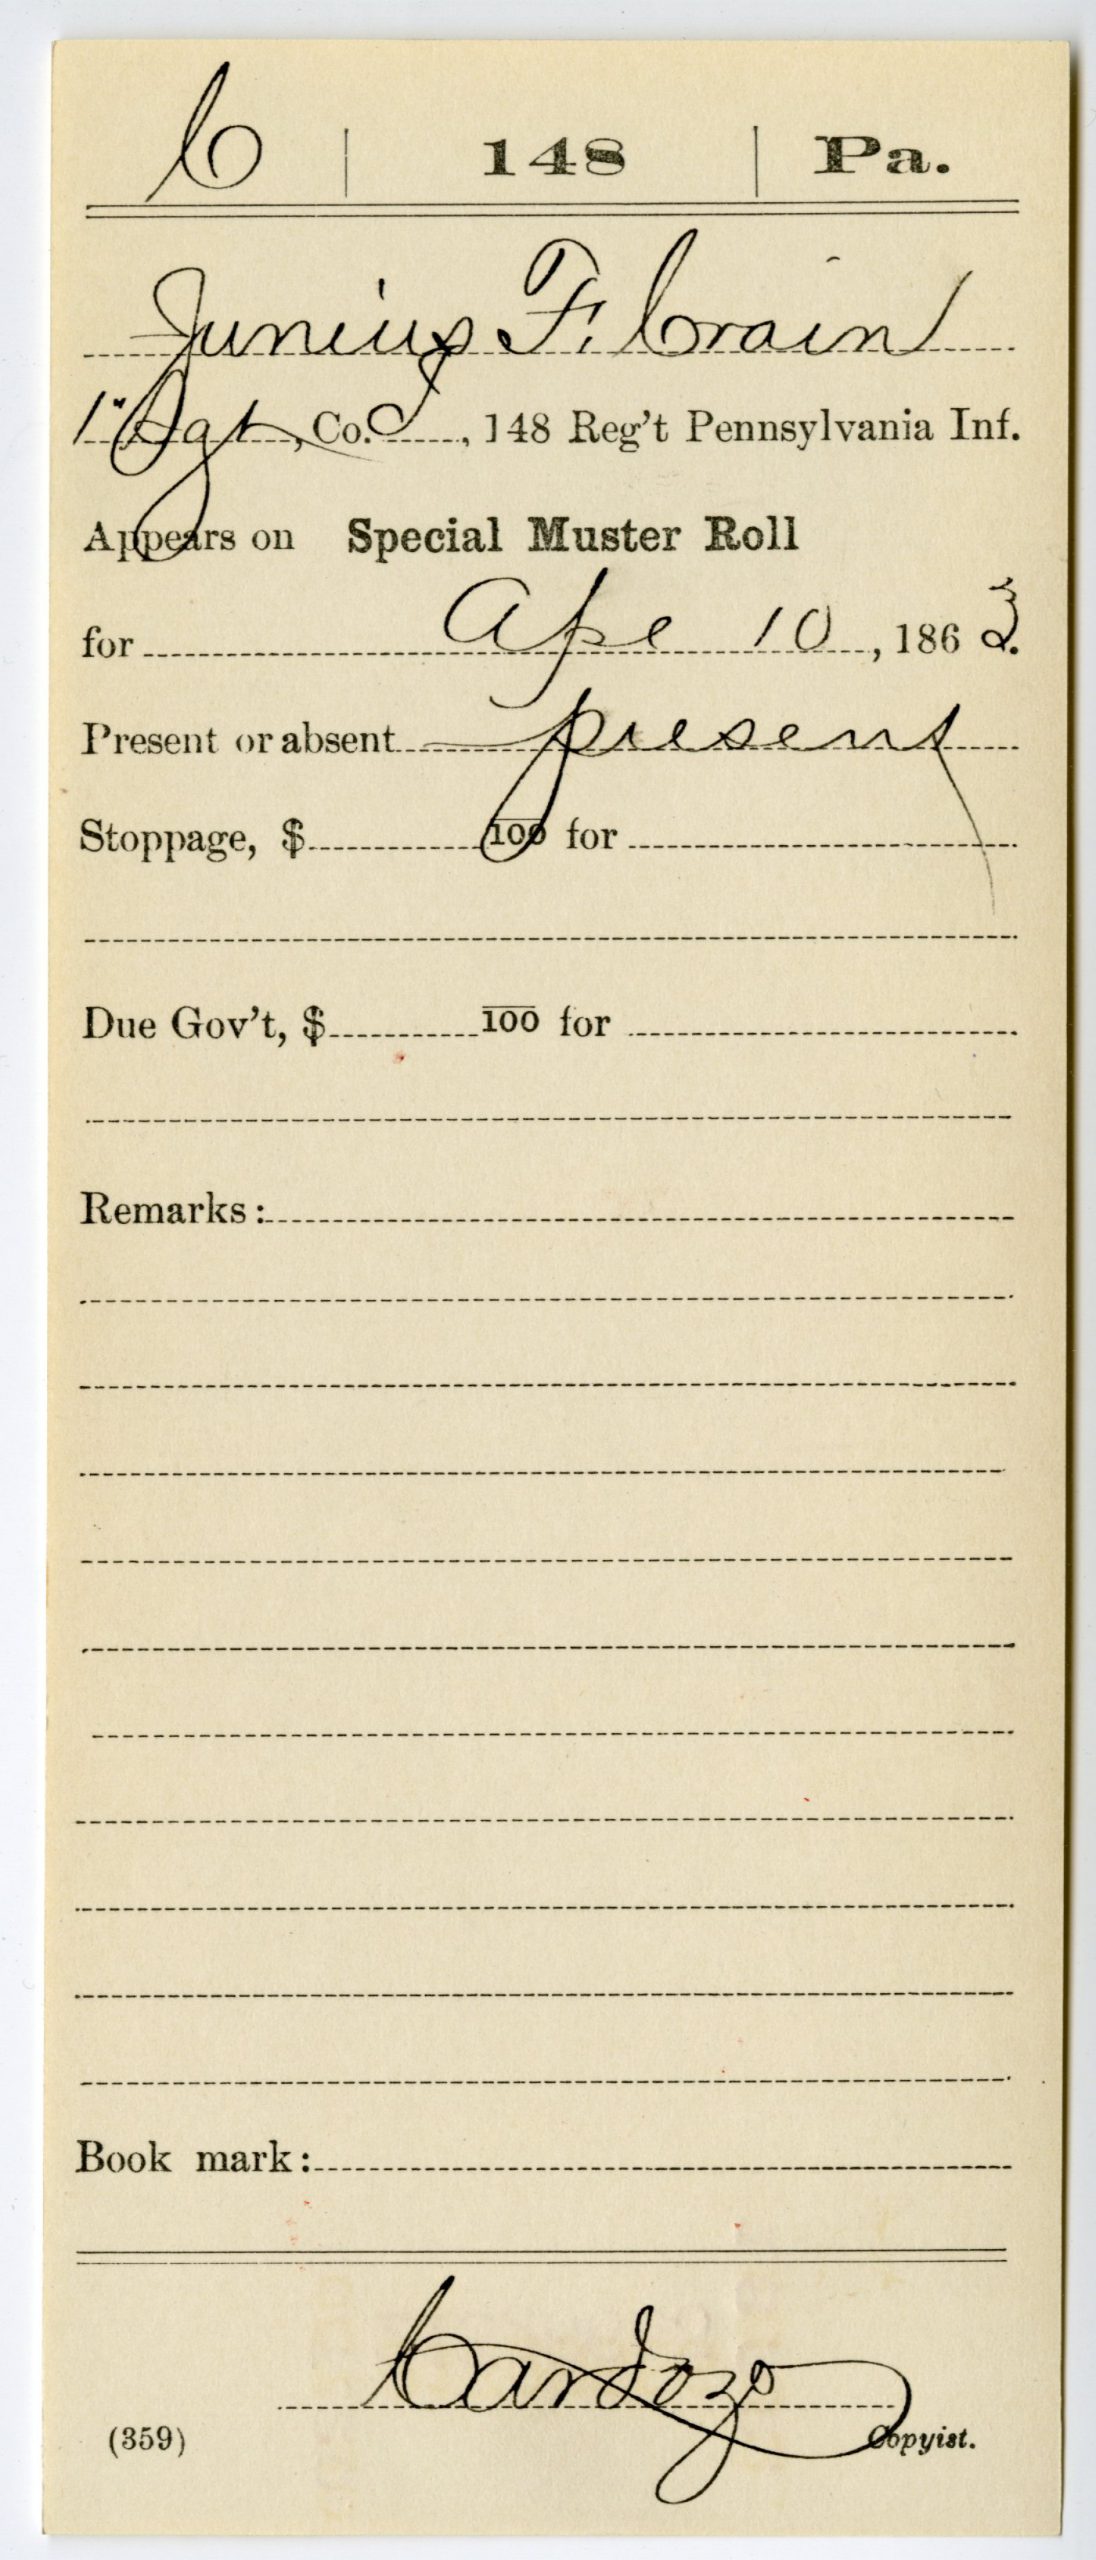 C | 148 | Pa.
Junius F. Crain
1" Sgt, Co. I, 148 Reg't Pennsylvania Inf.
Appears on Special Muster Roll
for Apl 10, 1863.
Present or absent present
Stoppage, $ 100 for
Due Gov't, $ 100 for
Remarks:
Book mark:
Cardozo
(359) Copyist.